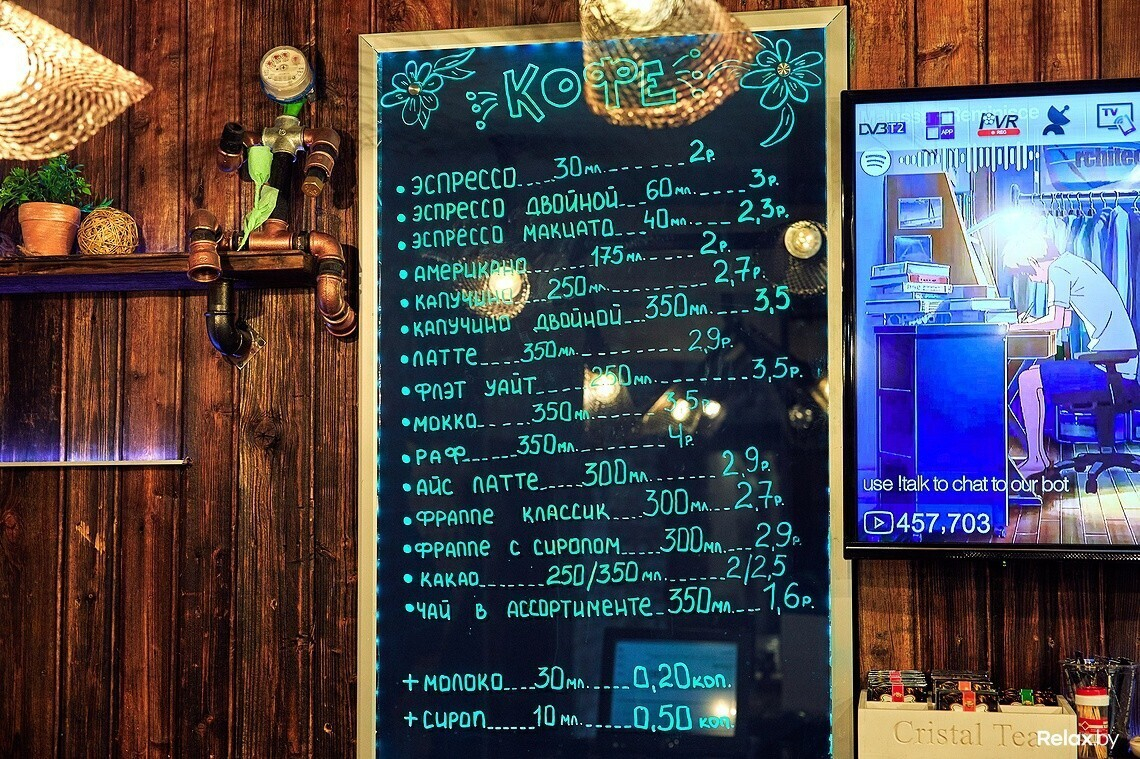 КОФЕ
•ЭСПРЕССО....30мл.------2р.
•ЭСПРЕССО ДВОЙНОЙ...60мл......3р.
•ЭСПРЕССО МАКИАТО...40мл.----2,3р.
•АМЕРИКАНО.......175мл.------2р.
•КАПУЧИНО....250мл.-------2,7р.
•КАПУЧИНО ДВОЙНОЙ...350мл....3,5
•ЛАТТЕ.....350мл.---------2,9р.
•ФЛЭТ УАЙТ.....250мл.---------3,5р.
•МОККО......350мл.-------3,5р.
•РАФ......350мл.--------4р.
•АЙС ЛАТТЕ.....300мл.......2,9р.
•ФРАППЕ КЛАССИК....300мл...2,7р.
•ФРАППЕ С СИРОПОМ....300мл....2,9р.
•КАКАО.......250/350мл.......2/2,5
•ЧАЙ В АССОРТИМЕНТЕ..350мл....1,6р.
+МОЛОКО....30мл......0,20коп.
+СИРОП.....10мл......0,50коп.
DVB T2 APP PVR REC TV
use !talk to chat to our bot
457,703
Cristal Tea
Relax.by